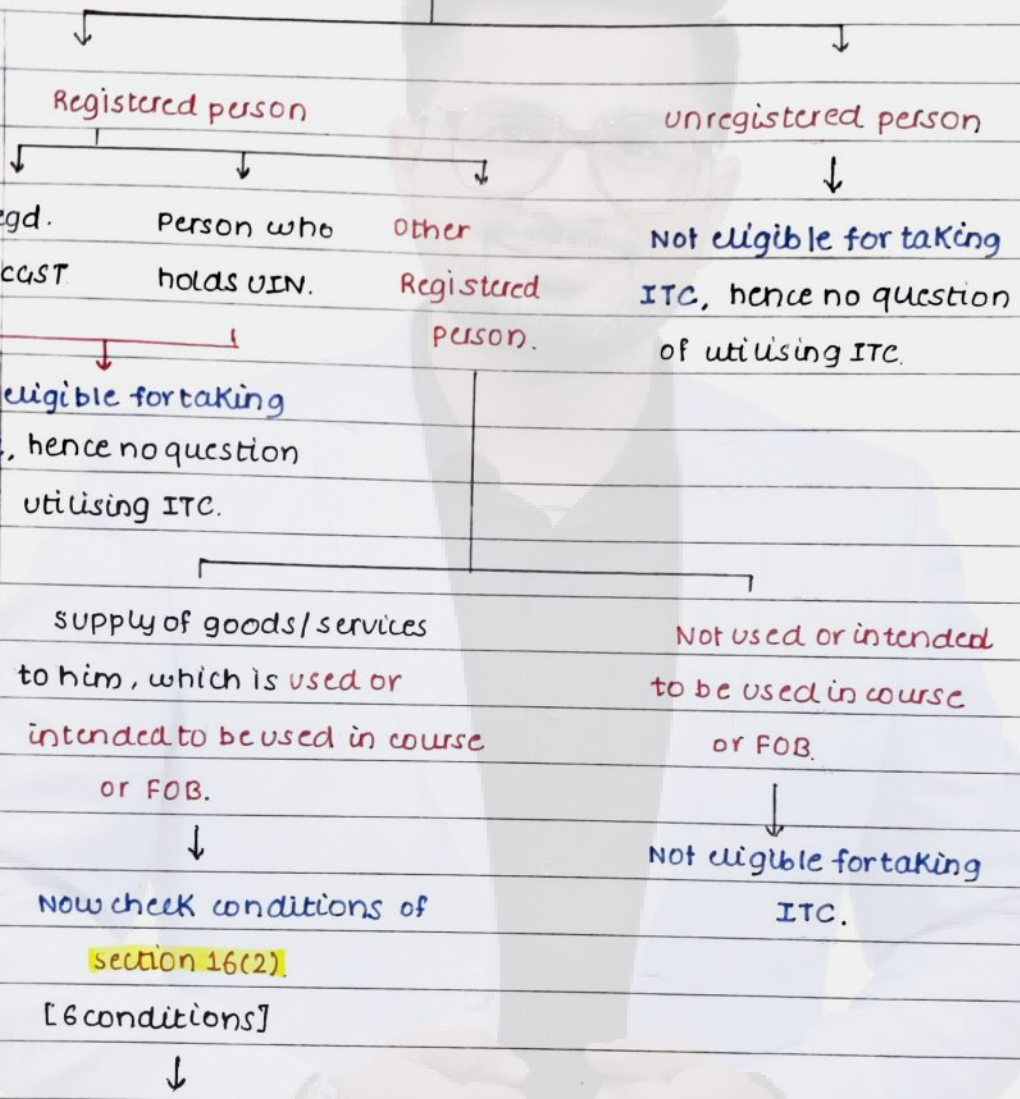 Registered person
unregistered person
egd. Person who Other
CGST holds UIN. Registered
person.
Not eligible for taking
ITC, hence no question
of utilising ITC.
eligible for taking
, hence no question
utilising ITC.
supply of goods/services
to him, which is used or
intended to be used in course
or FOB.
Not used or intended
to be used in course
or FOB.
Now check conditions of
section 16(2).
[6 conditions]
Not eligible for taking
ITC.